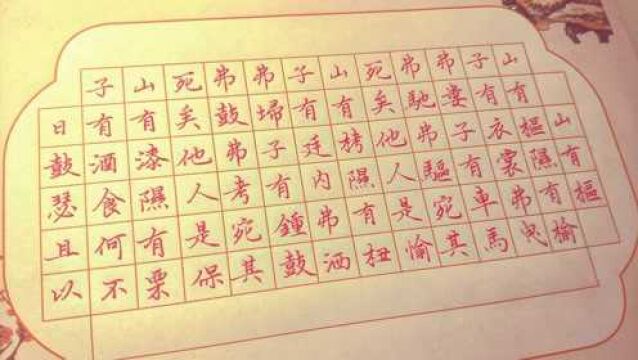 山有樞
山有樞隰有榆
子有衣裳弗曳
弗婁子有車馬
弗馳弗驅宛其
死矣他人是愉
山有栲隰有杻
子有廷內弗洒
弗埽子有鍾鼓
弗鼓弗考宛其
死矣他人是保
山有漆隰有栗
子有酒食何不
日鼓瑟且以